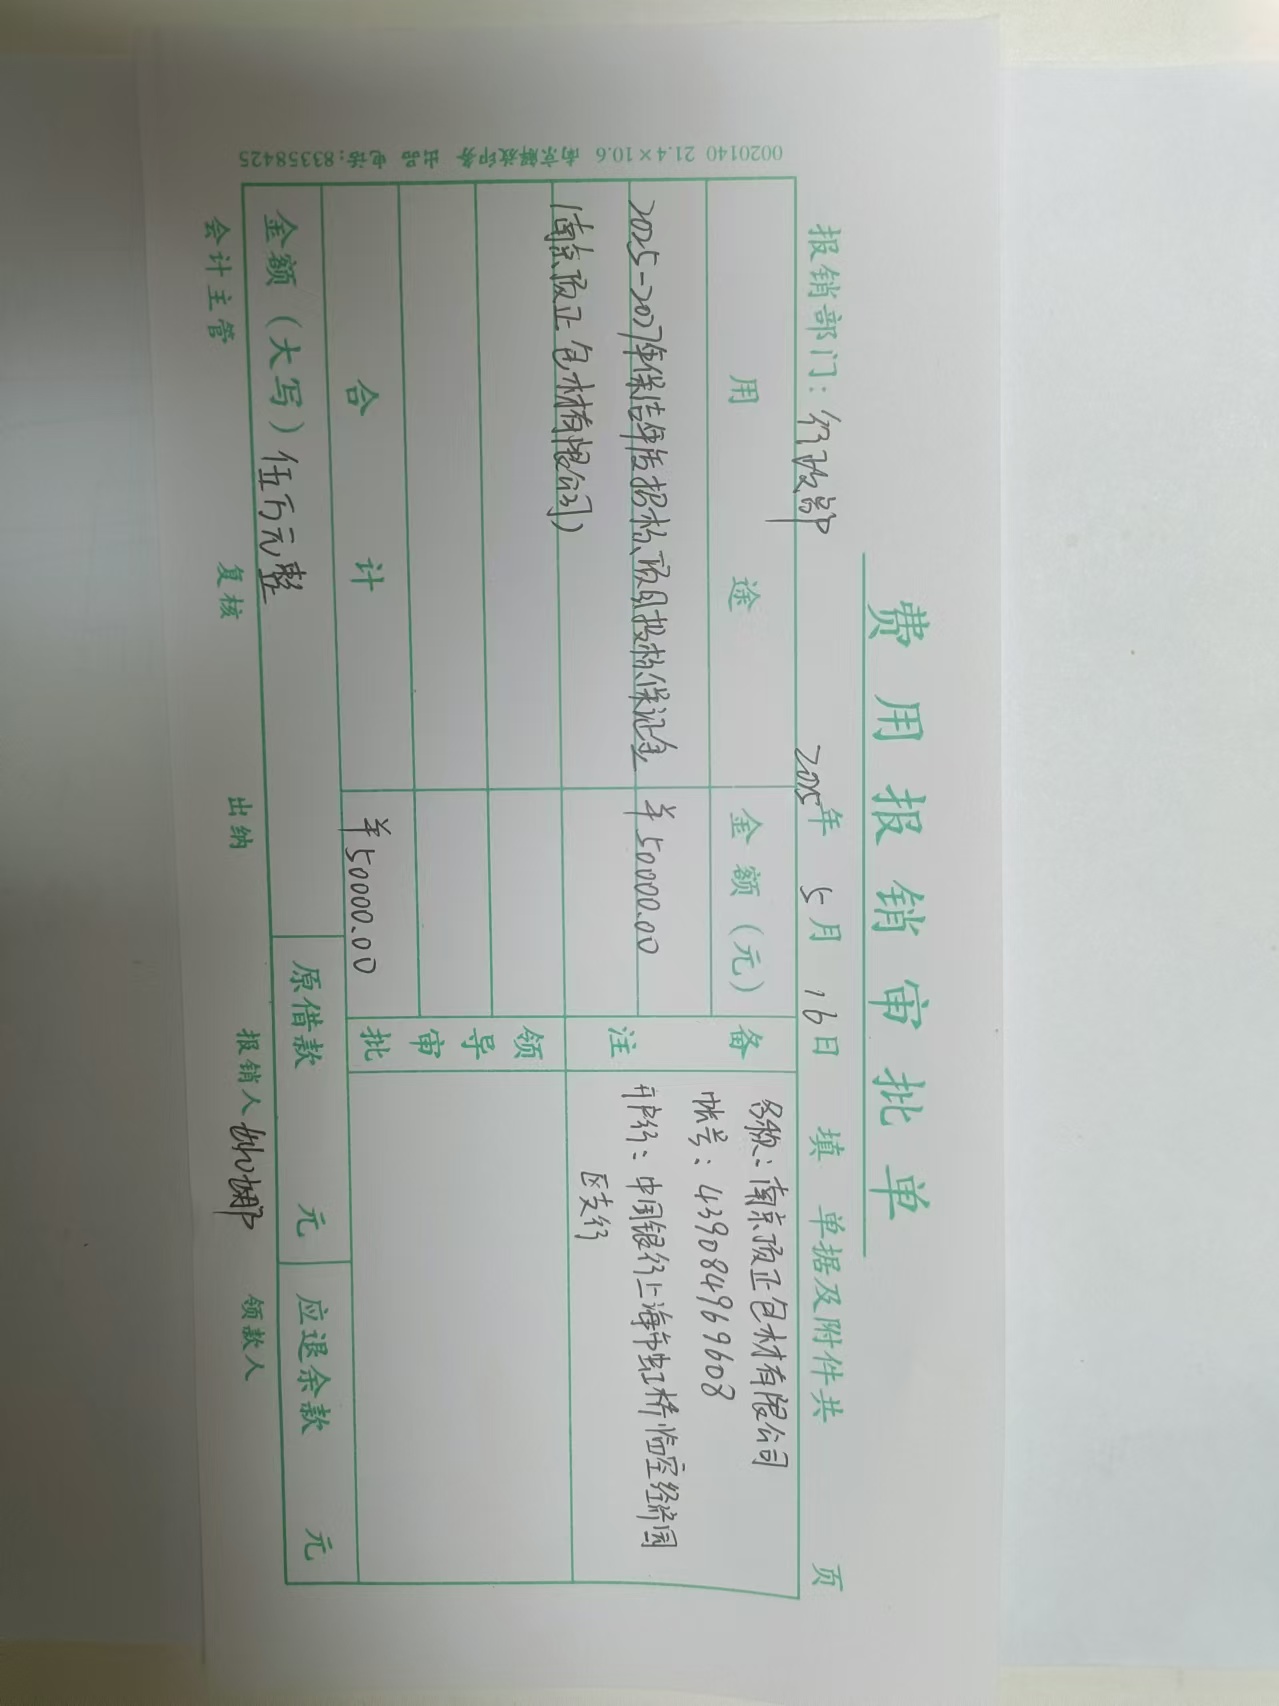 费用报销审批单
报销部门：行政部 2025年 5月 16日 填 单据及附件共 页
用途 金额（元） 备注
2025-2027年保洁年度招标项目投标保证金 ¥50000.00
（南京顶正包材有限公司）
名称：南京顶正包材有限公司
帐号：439084969608
开户行：中国银行上海市虹桥临空经济园
区支行
领导审批
合计 ¥50000.00
金额（大写）伍万元整 原借款 元 应退余款 元
会计主管 复核 出纳 报销人 领款人
0020140 21.4×10.6 南京解放印务 出品 电话：83358425